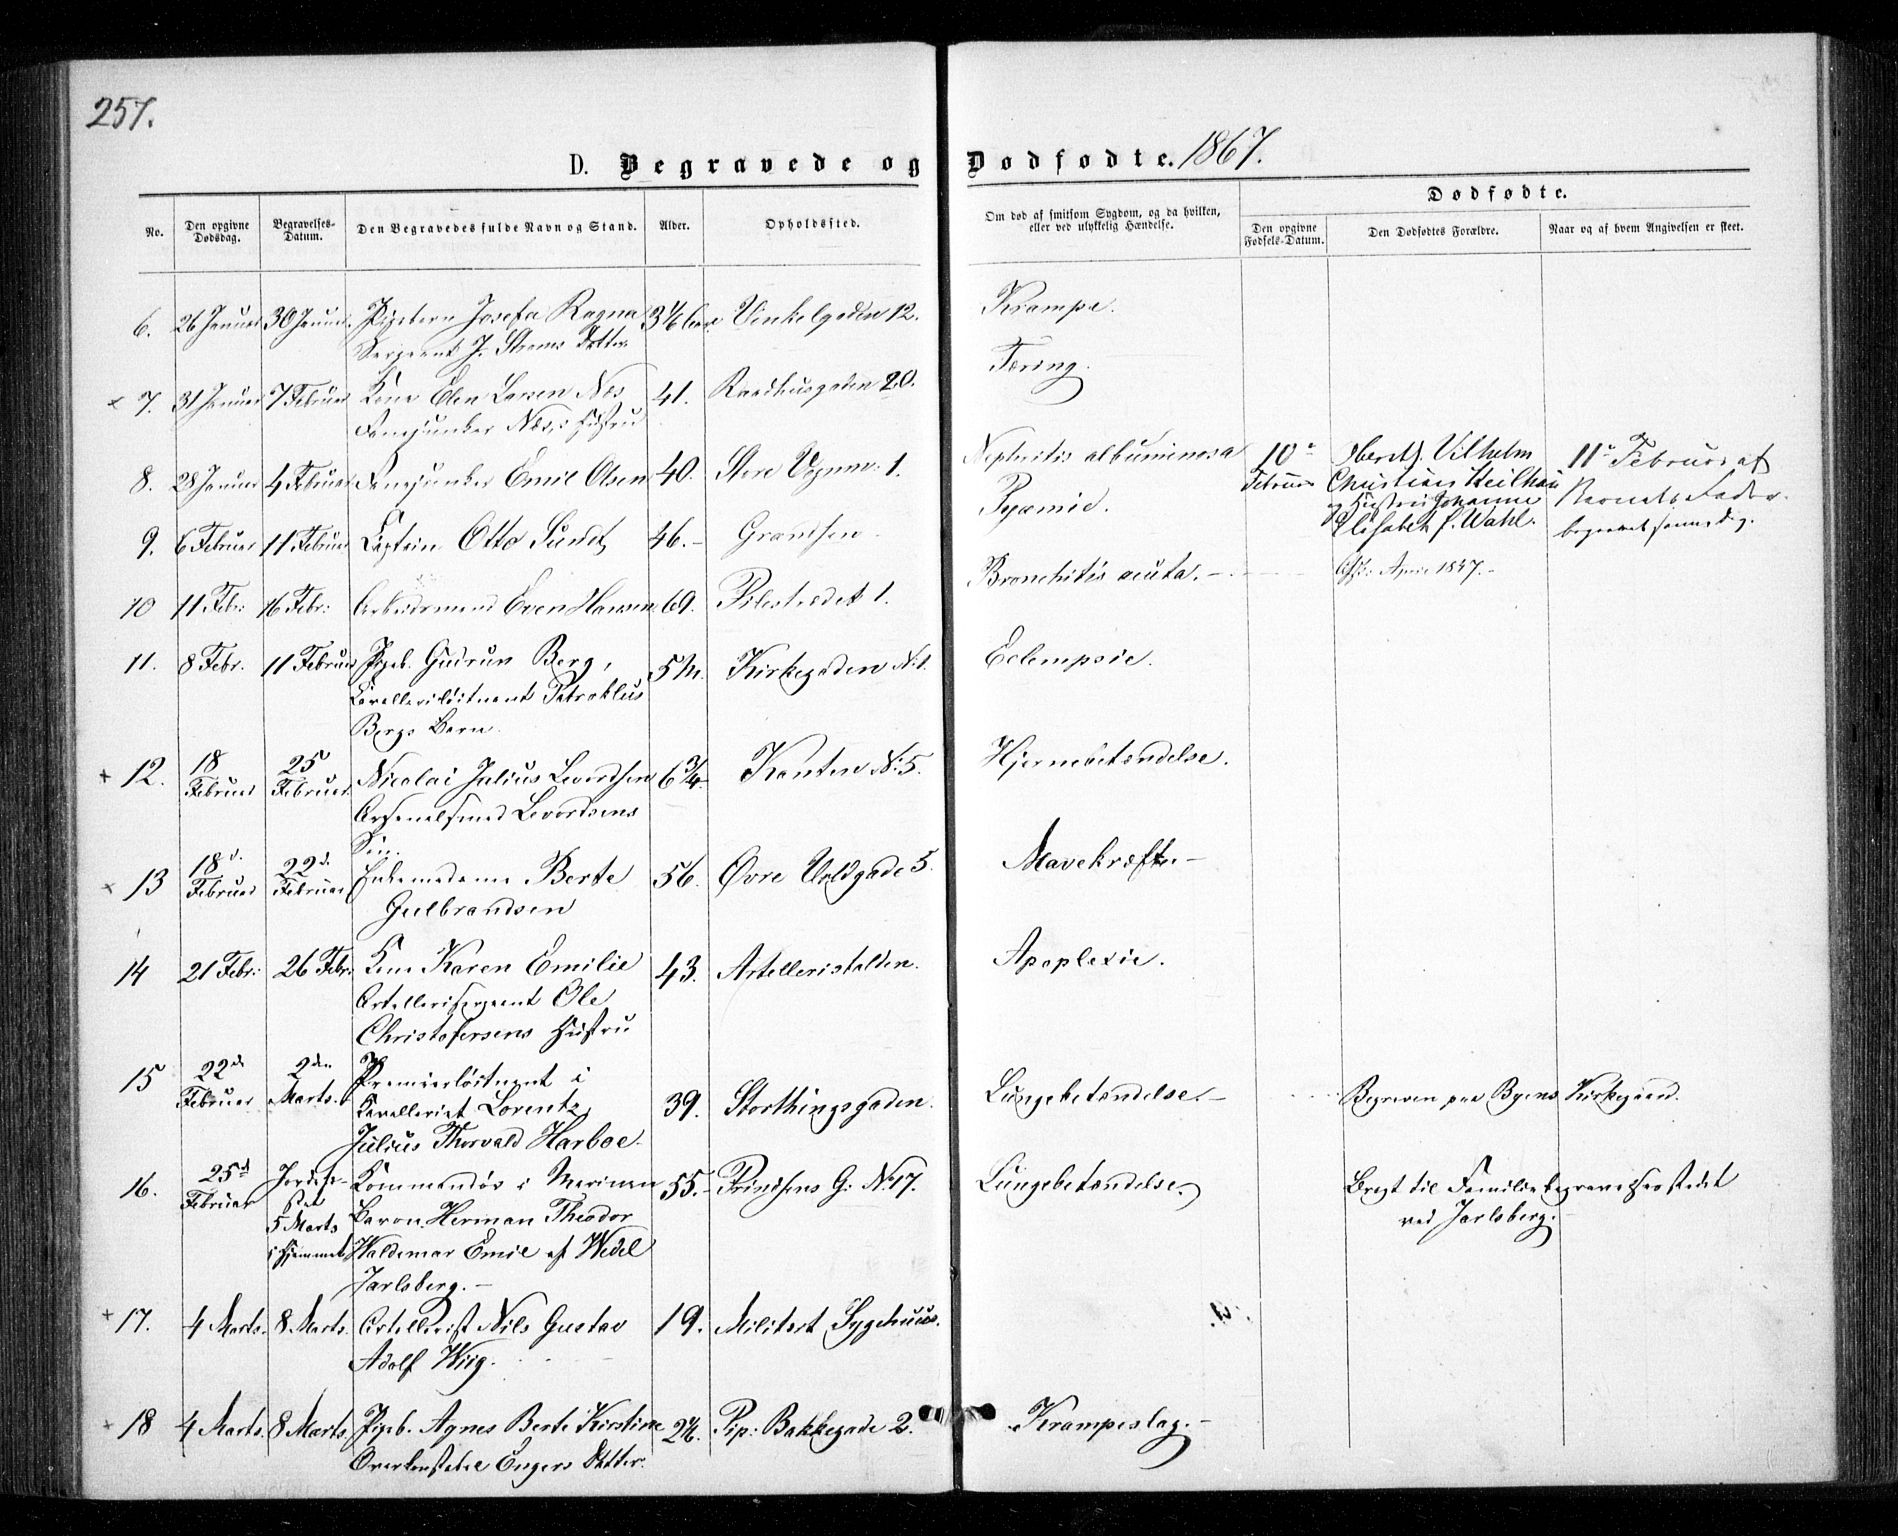 257.
D. Begravede og Dødfødte. 1867.
No.
Den opgivne Dødsdag.
Begravelses-Datum.
Den Begravedes fulde Navn og Stand.
Alder.
Opholdssted.
Om død af smitsom Sygdom, og da hvilken, eller ved ulykkelig Hændelse.
Dødfødte.
Den opgivne Fødsels-Datum.
Den Dødfødtes Forældre.
Naar og af hvem Angivelsen er skeet.
6. 26 Januar 30 Januar Josefa Ragna Vinkelgaden 12. Krampe.
Sergeant J. Strøms Datter
7. 31 Januar 7 Februar Kone Elen Larsen Næs 41. Raadhusgaden 20. Tæring.
Fanejunker Næss Hustru
8. 28 Januar 4 Februar Fanejunker Emil Olsen 40. Store 1. Nephritis albuminosa
10 Februar Vilhelm Christian Keilhau og Hustru Johanne Elisabeth f. Wahl.
11 Februar af Barnets Fader. begravet samme Dag.
9. 6 Februar 11 Februar Captein Otto Sundt 46. Grændsen Pyæmie.
10 11 Febr: 16 Febr: Arbeidsmand Even Hansen 69. Pilestrædet 1. Bronchitis acuta.
11. 8 Febr. 11 Februar Pigeb. Gudrun Berg, 5 M. Kirkegaden N: 1. Eclempsie.
Kavalleriløitnant Patroklus
Bergs Barn.
12. 18 Februar 25 Februar Nicolai Julius Levordsen 6 3/4 Kanten N: 5. Hjernebetændelse.
Arsenalsmed Levordsens
Søn.
13 18 d. Februar 22 d. Februar Enkemadame Berte 56. Øvre Voldgade 5. Mavekræft.
Gulbrandsen
14 21 Febr: 26 Febr: Kone Karen Emilie 43. Artelleristalden. Apoplexie.
Artellerisergeant Ole
Christofersens Hustru
15 22 d Februar 2den Marts. Premierløitnant i
Kavalleriet Lorentz 39. Storthingsgaden. Lungebetændelse. Begraven paa Byens Kirkegaard.
Julius Thorvald Harboe.
16. 25 d Februar Jordfæstet 5 Marts i Hjemmet Kommandør i Marinen 55. Prindsens G: N: 17. Lungebetændelse. Bragt til Familiebegravelsesstedet
Baron Herman Theodor ved Jarlsberg.
Waldemar Emil af Wedel
Jarlsberg.
17. 4 Marts. 8 Marts. Artellerist Nils Gustav 19. Militært Sygehuus.
Adolf Wiig.
18 4 Marts. 8 Marts. Pigeb. Agnes Berte Kirstine Pip: Bakkegade 2. Krampeslag.
Overkonstabel Engers Datter.